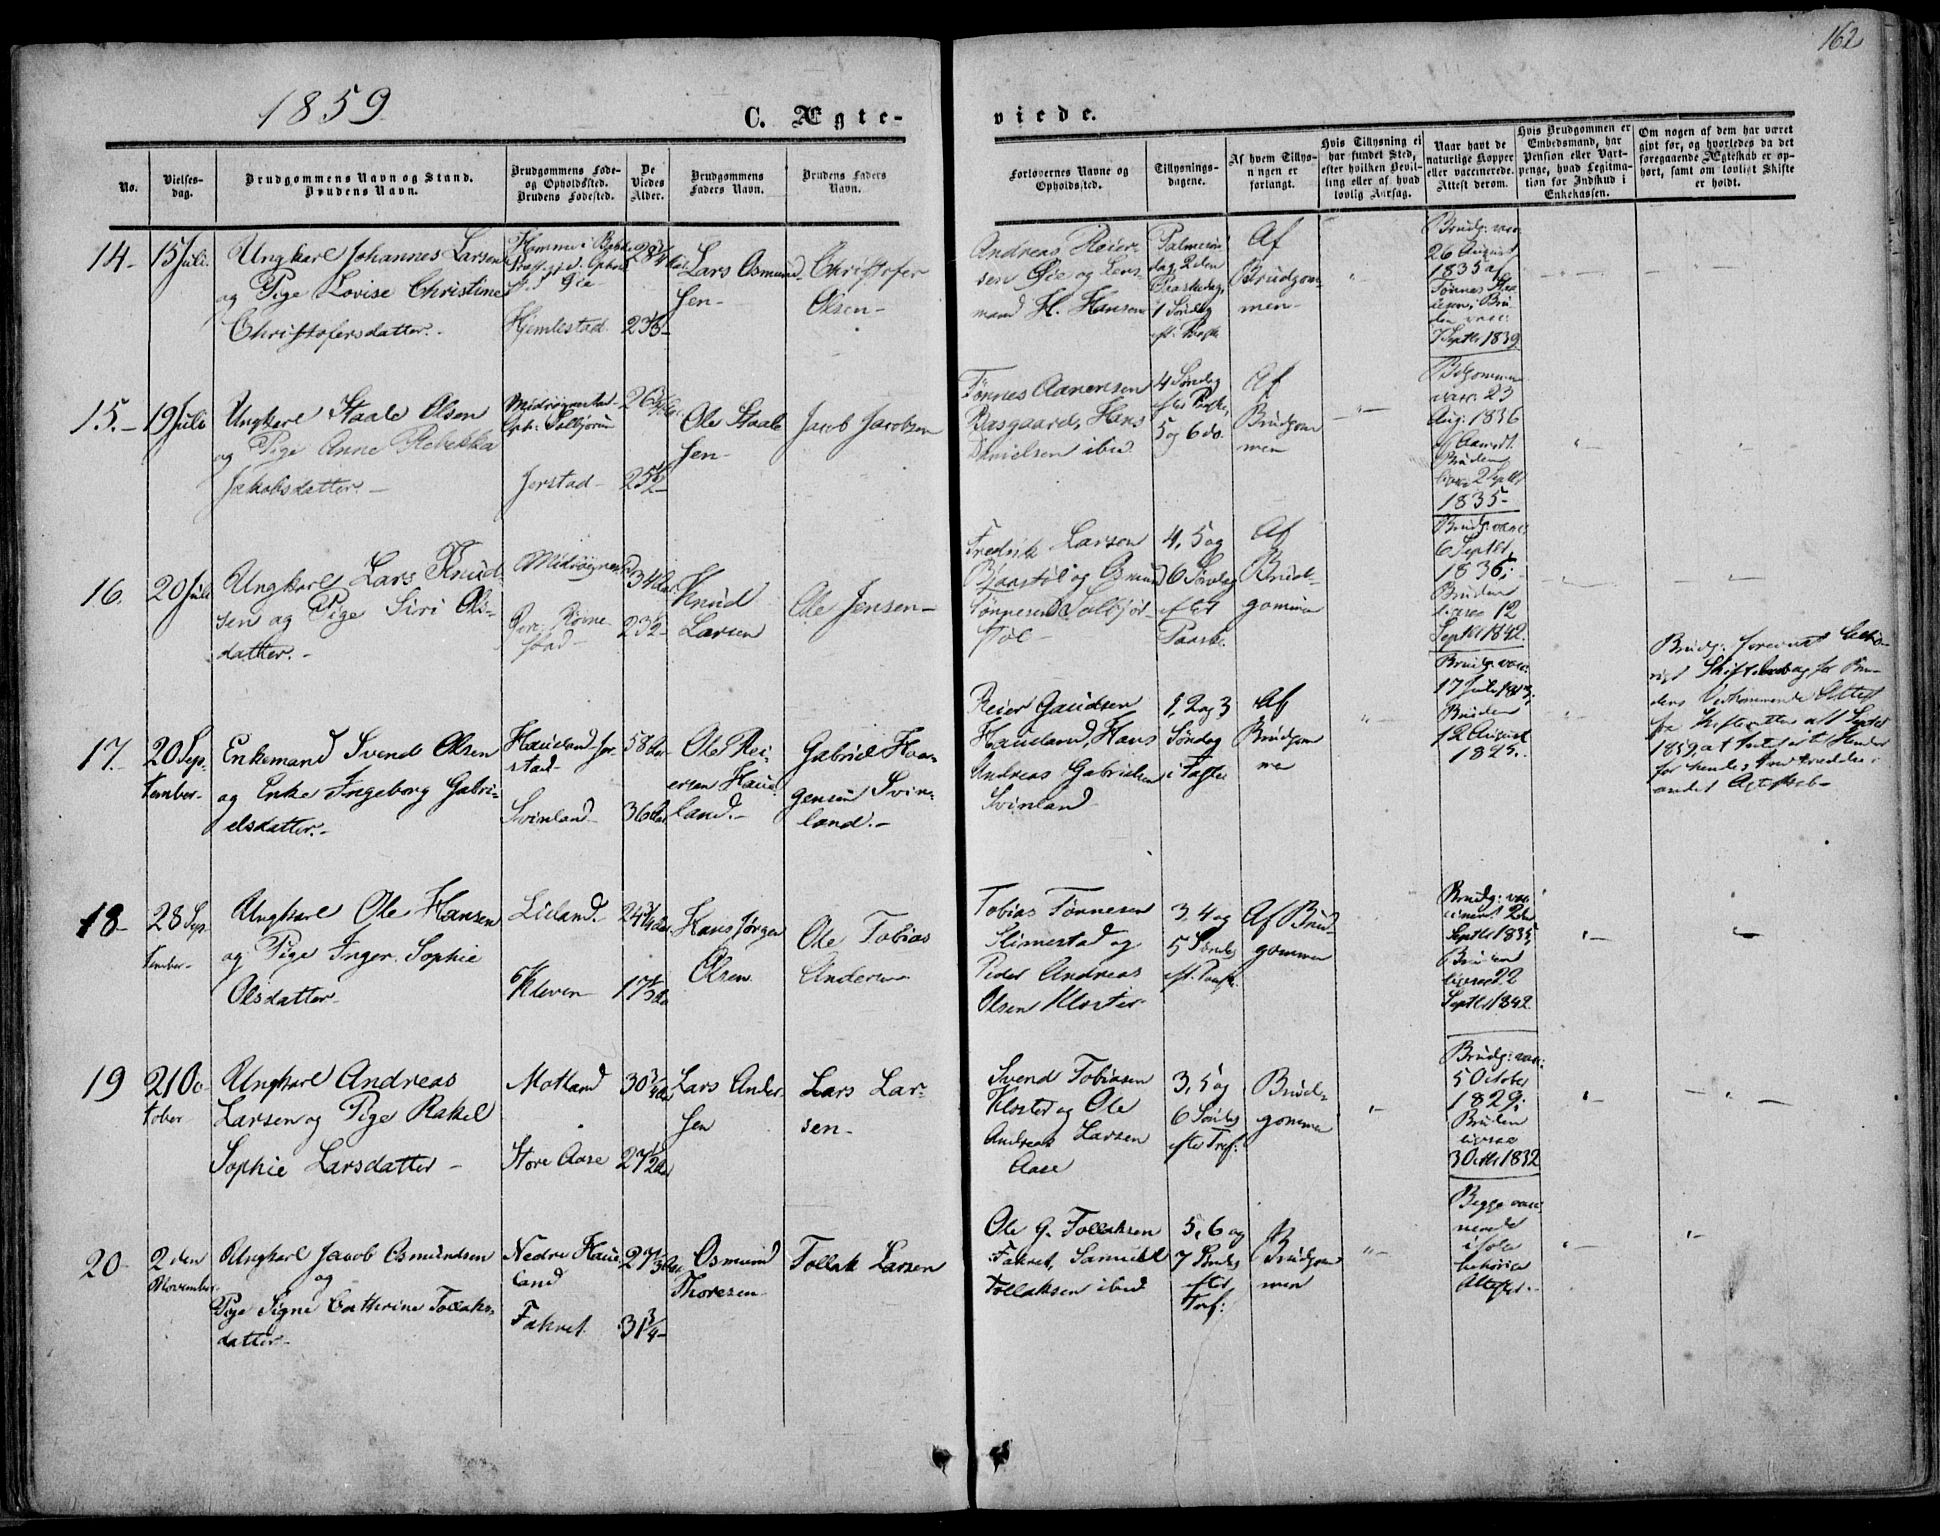 162
1859
C. Ægte-
viede.
No.
Vielses-
dag.
Brudgommens Navn og Stand.
Brudens Navn.
Brudgommens Føde-
og Opholdssted.
Brudens Fødested.
De
Viedes
Alder.
Brudgommens
Faders Navn.
Brudens Faders
Navn.
Forlovernes Navne og
Opholdssted.
Tillysnings-
dagene.
Af hvem Tillys-
ningen er
forlangt.
Hvis Tillysning ei
har fundet Sted,
efter hvilken Bevil-
ling eller af hvad
lovlig Aarsag.
Naar havt de
naturlige Kopper
eller vaccinerede.
Attest derom.
Hvis Brudgommen er
Embedsmand, har
Pension eller Vart-
penge, hvad Legitima-
tion for Indskud i
Enkekassen.
Om nogen af dem har været
givt før, og hvorledes da det
foregaaende Ægteskab er op-
hørt, samt om lovligt Skifte
er holdt.
14-
15 Juli.
Ungkarl Johannes Larsen
og Pige Lovise Christine
Christofersdatter.-
Hjemlestad
28 3/4
23 1/3-
Lars Osmund
sen-
Christofer
Olsen-
Andreas Reier-
sen Øie og Lars
mand H. Hansen
Palmesøn
dag, 2den
Paaskedag,
1 Søndag
eft. Paaske
Af
Brudgom
men-
Brudg: vac.
26 August
1835 af
Tønnes
den vacc:
7 Septb 1839
15.-
19 Juli
Ungkarl Staale Olsen
og Pige Anne Rebekka
Jakobsdatter.-
Jerstad-
26 3/4
25 1/2-
Ole Staale
sen-
Jacob Jacobsen
Tønnes Aanensen
Basgaard, Hans
Danielsen ibid
4 Søndag
efter Paaske,
5 og 6 do.
Af
Brudgom
men
Brdgommen
vacc. 23
Aug: 1836
Bruden
2 Septbr
1835-
16.
20 Juli
Ungkarl Lars Knud
sen og Pige Siri Ols-
datter.-
34 Aar
23 1/2-
Knud
Larsen
Ole Jensen-
Fredrik Larsen
Bjaastøl og Osmund
Tønnesen
støl-
4, 5 og
6 Søndag
efter
Paaske
Af
Brud-
gommen
Brudg: vacc:
6 Septbr
1836;
Bruden
12
Septbr 1842.
17.-
20 Sep-
tember-
Enkemand Svend Olsen
og Enke Ingeborg Gabri-
elsdatter.-
Haueland Jer
stad-
Svinland-
58 Aar
36 Aar
Ole Rei-
ersen Haue
land.-
Gabriel Haa-
gensen Svin-
land.-
Reier Gaudsen
Haueland, Hans
Andreas Gabrielsen
Svinland
1, 2 og 3
Søndag
i Faste
Af
Brudgom
men
Brudg: vacc:
17 Juli 1813;
Bruden
12 August
1825.
Skifteretten af 1 Septbr
andet Ægteskab-
18-
28 Sep-
tember-
Ungkarl Ole Hansen
og Pige Inger Sophie
Olsdatter-
Lieland.
Kleven-
24 3/4 Aar
17 1/3 Aar
Hans Jørgen
Olsen
Ole Tobias
Andersen
Tobias Tønnesen
Slimestad og
Peder Andreas
Olsen Kloster
3, 4 og
5 Søndag
eft. Paaske
Af Brud
gommen
Brudg: vac
cineret 2den
Septbr 1835
Bruden
22
Septbr 1842.
19
21 Oc
tober
Ungkarl Andreas
Larsen og Pige Rakel
Sophie Larsdatter-
Motland
Store Aase
30 3/4 Aar
27 1/2 Aar
Lars Ander
sen
Lars Lar-
sen-
Svend Tobiasen
Kloster og Ole
Andreas Larsen
Aase
3, 5 og
6 Søndag
efter Tref:
Brud-
gommen
Brudg: vac:
5 October
1829;
Bruden
3 Octbr 1832
20-
2den
November
Ungkarl Jacob Osmundsen
og
Pige Signe Cathrine Tollaks-
datter-
Nedre Haue
land
Fakret
27 1/3 Aar
31 3/4-
Osmund
Thoresen
Tollak Larsen
Ole G. Tollaksen
Fakret, Samuel
Tollaksen ibid
5, 6 og
7 Søndag
efter
Tref:
Af
Brudgom
men
Begge vacci
nerede
ifølge
behørige
Attester.-